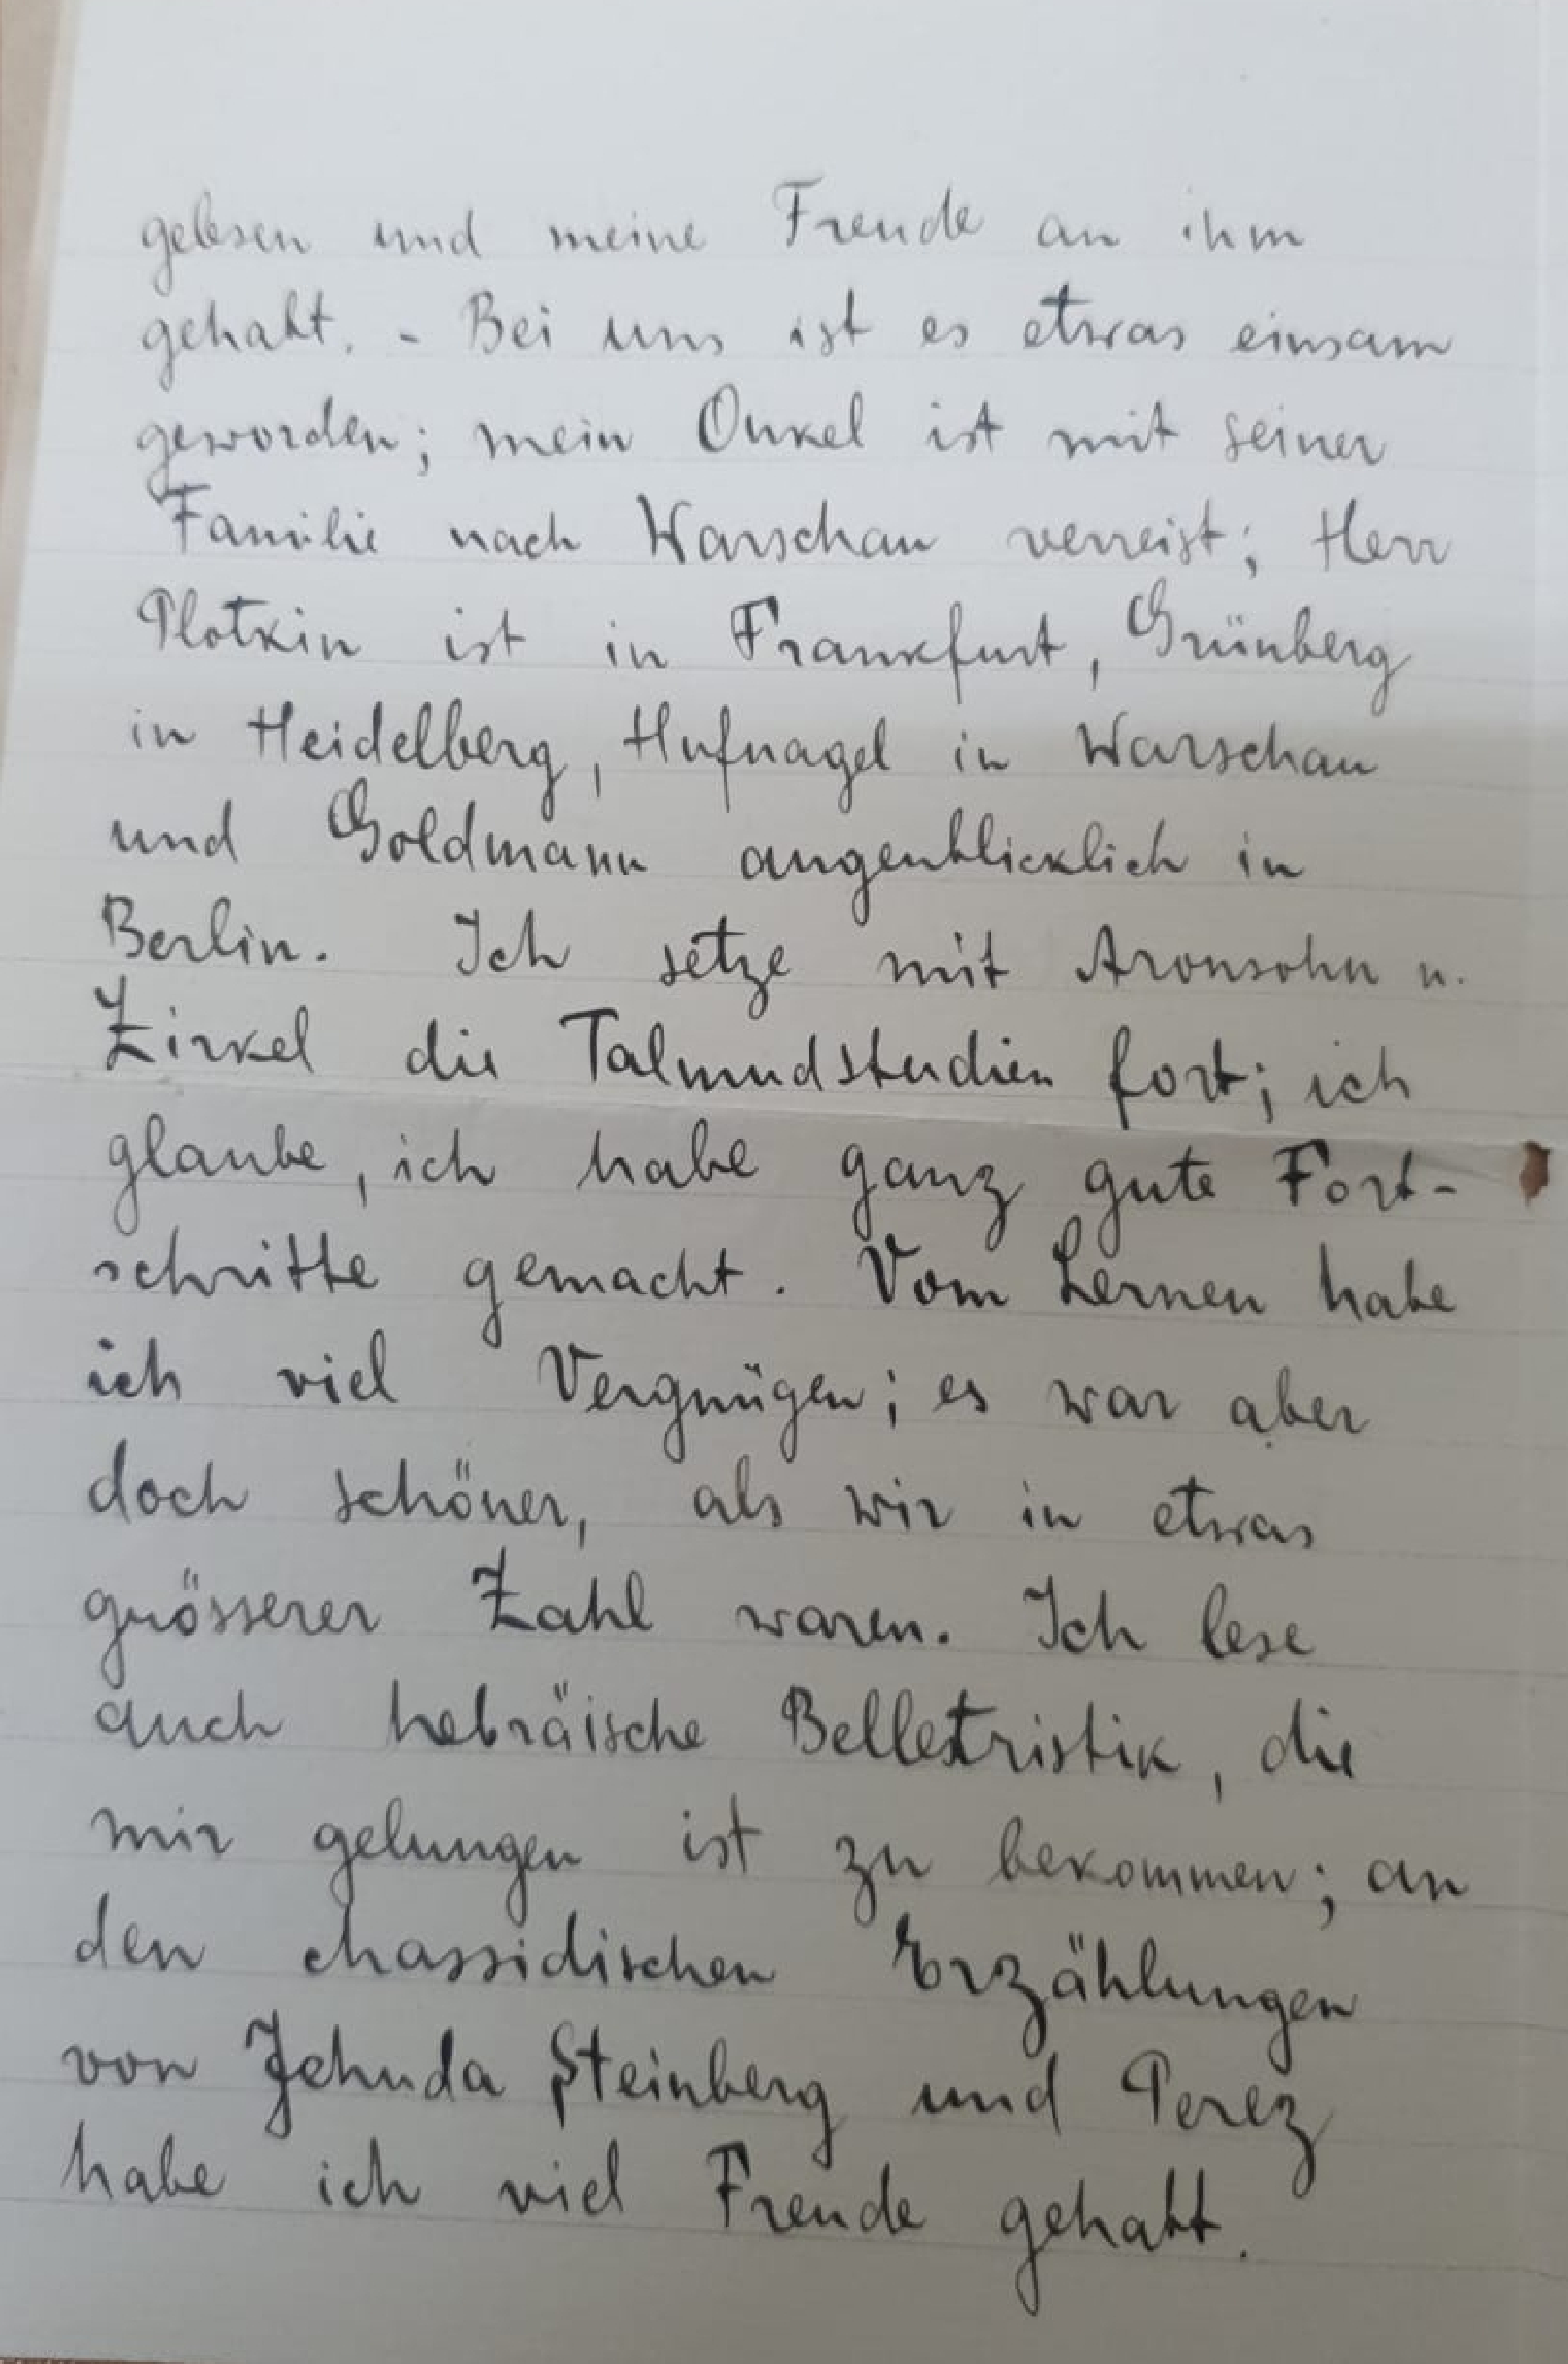 gelesen und meine Freude an ihm
gehabt. - Bei uns ist es etwas einsam
geworden; mein Onkel ist mit seiner
Familie nach Warschau verreist; Herr
Plotkin ist in Frankfurt, Grünberg
in Heidelberg, Hufnagel in Warschau
und Goldmann augenblicklich in
Berlin. Ich setze mit Aronsohn u.
Zirkel die Talmudstudien fort; ich
glaube, ich habe ganz gute Fort-
schritte gemacht. Vom Lernen habe
ich viel Vergnügen; es war aber
doch schöner, als wir in etwas
grösserer Zahl waren. Ich lese
auch hebräische Belletristik, die
mir gelungen ist zu bekommen; an
den chassidischen Erzählungen
von Jehuda Steinberg und Perez
habe ich viel Freude gehabt.